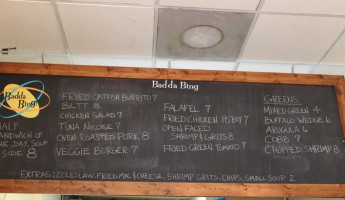 Badda Bing
Badda Bing
HALF
SANDWICH OF
THE DAY, SOUP
SIDE 8
FRIED CATFISH BURRITO 7
BLTT 8
CHICKEN SALAD 7
TUNA NICOISE 7
OVEN ROASTED PORK 8
VEGGIE BURGER 7
FALAFEL 7
FRIED CHICKEN 7
OPEN FACED
SHRIMP & GRITS 8
FRIED GREEN TOMATO 7
GREENS
MIXED GREEN 4
BUFFALO WEDGE 6
ARUGULA 6
COBB 7
CHOPPED SHRIMP 8
EXTRAS: COLESLAW, FRIED MAC & CHEESE, SHRIMP, GRITS, CHIPS, SMALL SOUP 2